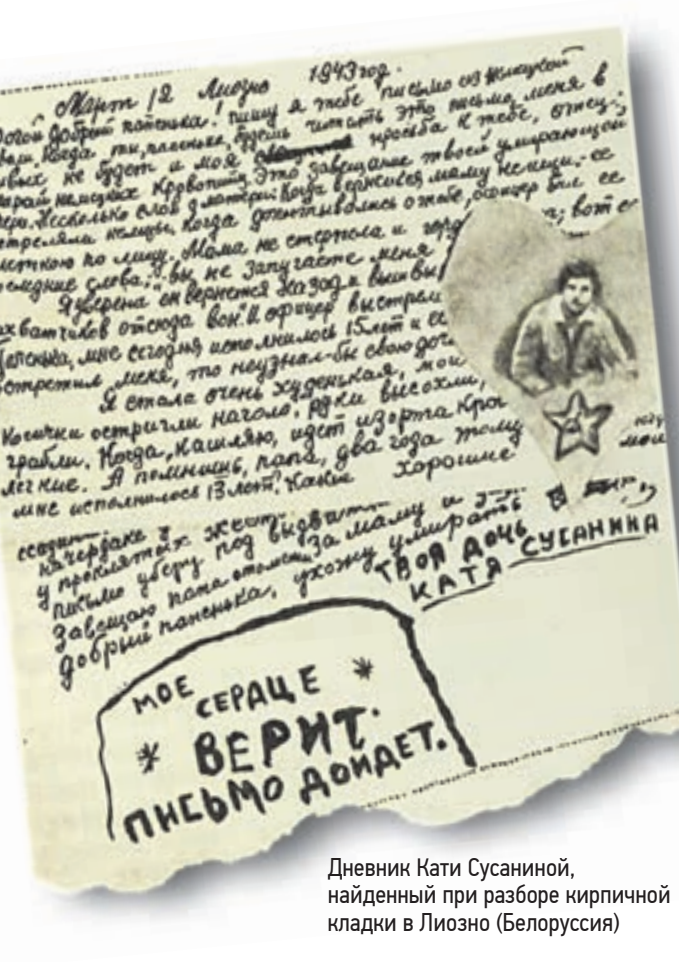 Март 12 Лиозно 1943 год.
добрый папенька! пишу я тебе письмо из немецкой
Когда ты, папенька, будешь читать это письмо, меня в
живых не будет и моя просьба к тебе, отец:
немецких кровопийц. Это завещание твоей умирающей
Несколько слов о матери. Когда вернешься, маму не ищи. - ее
расстреляли немцы. Когда допытывались о тебе, офицер бил ее
плеткою по лицу. Мама не стерпела и вот ее
последние слова: „вы не запугаете меня
Я уверена он вернется назад и
захватчиков отсюда вон". И офицер выстрел
Папенька, мне сегодня исполнилось 15 лет и если
встретил меня, то не узнал-бы свою доч
Я стала очень худенькая, мои
Косички остригли наголо, руки высохли,
грабли. Когда, кашляю, идет изо рта кро
легкие. А помнишь, папа, два года тому
мне исполнилось 13 лет? Какие хорошие
мои
на чердаке у
у проклятых
письмо уберу под
Завещаю папа отомсти за маму и
добрый папенька, ухожу умирать
ТВОЯ ДОЧЬ
КАТЯ СУСАНИНА
МОЕ
СЕРДЦЕ
ВЕРИТ.
ПИСЬМО ДОЙДЕТ.
Дневник Кати Сусаниной,
найденный при разборе кирпичной
кладки в Лиозно (Белоруссия)